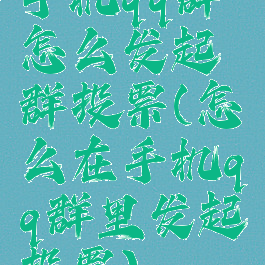 手机qq群
怎么发起
群投票(怎
么在手机q
q群里发起
投票)